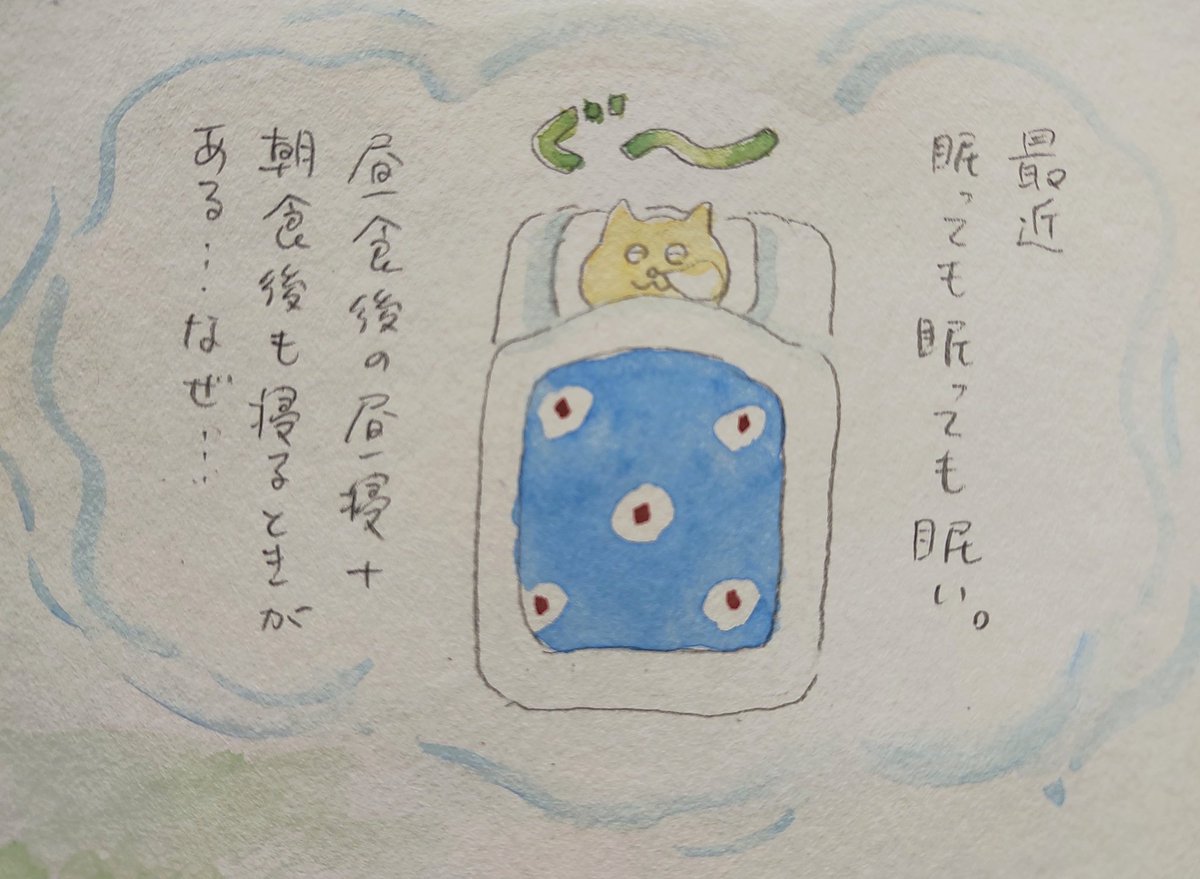 最近
眠っても眠っても眠い。
ぐ〜
昼食後の昼寝+
朝食後も寝るときが
ある…なぜ……